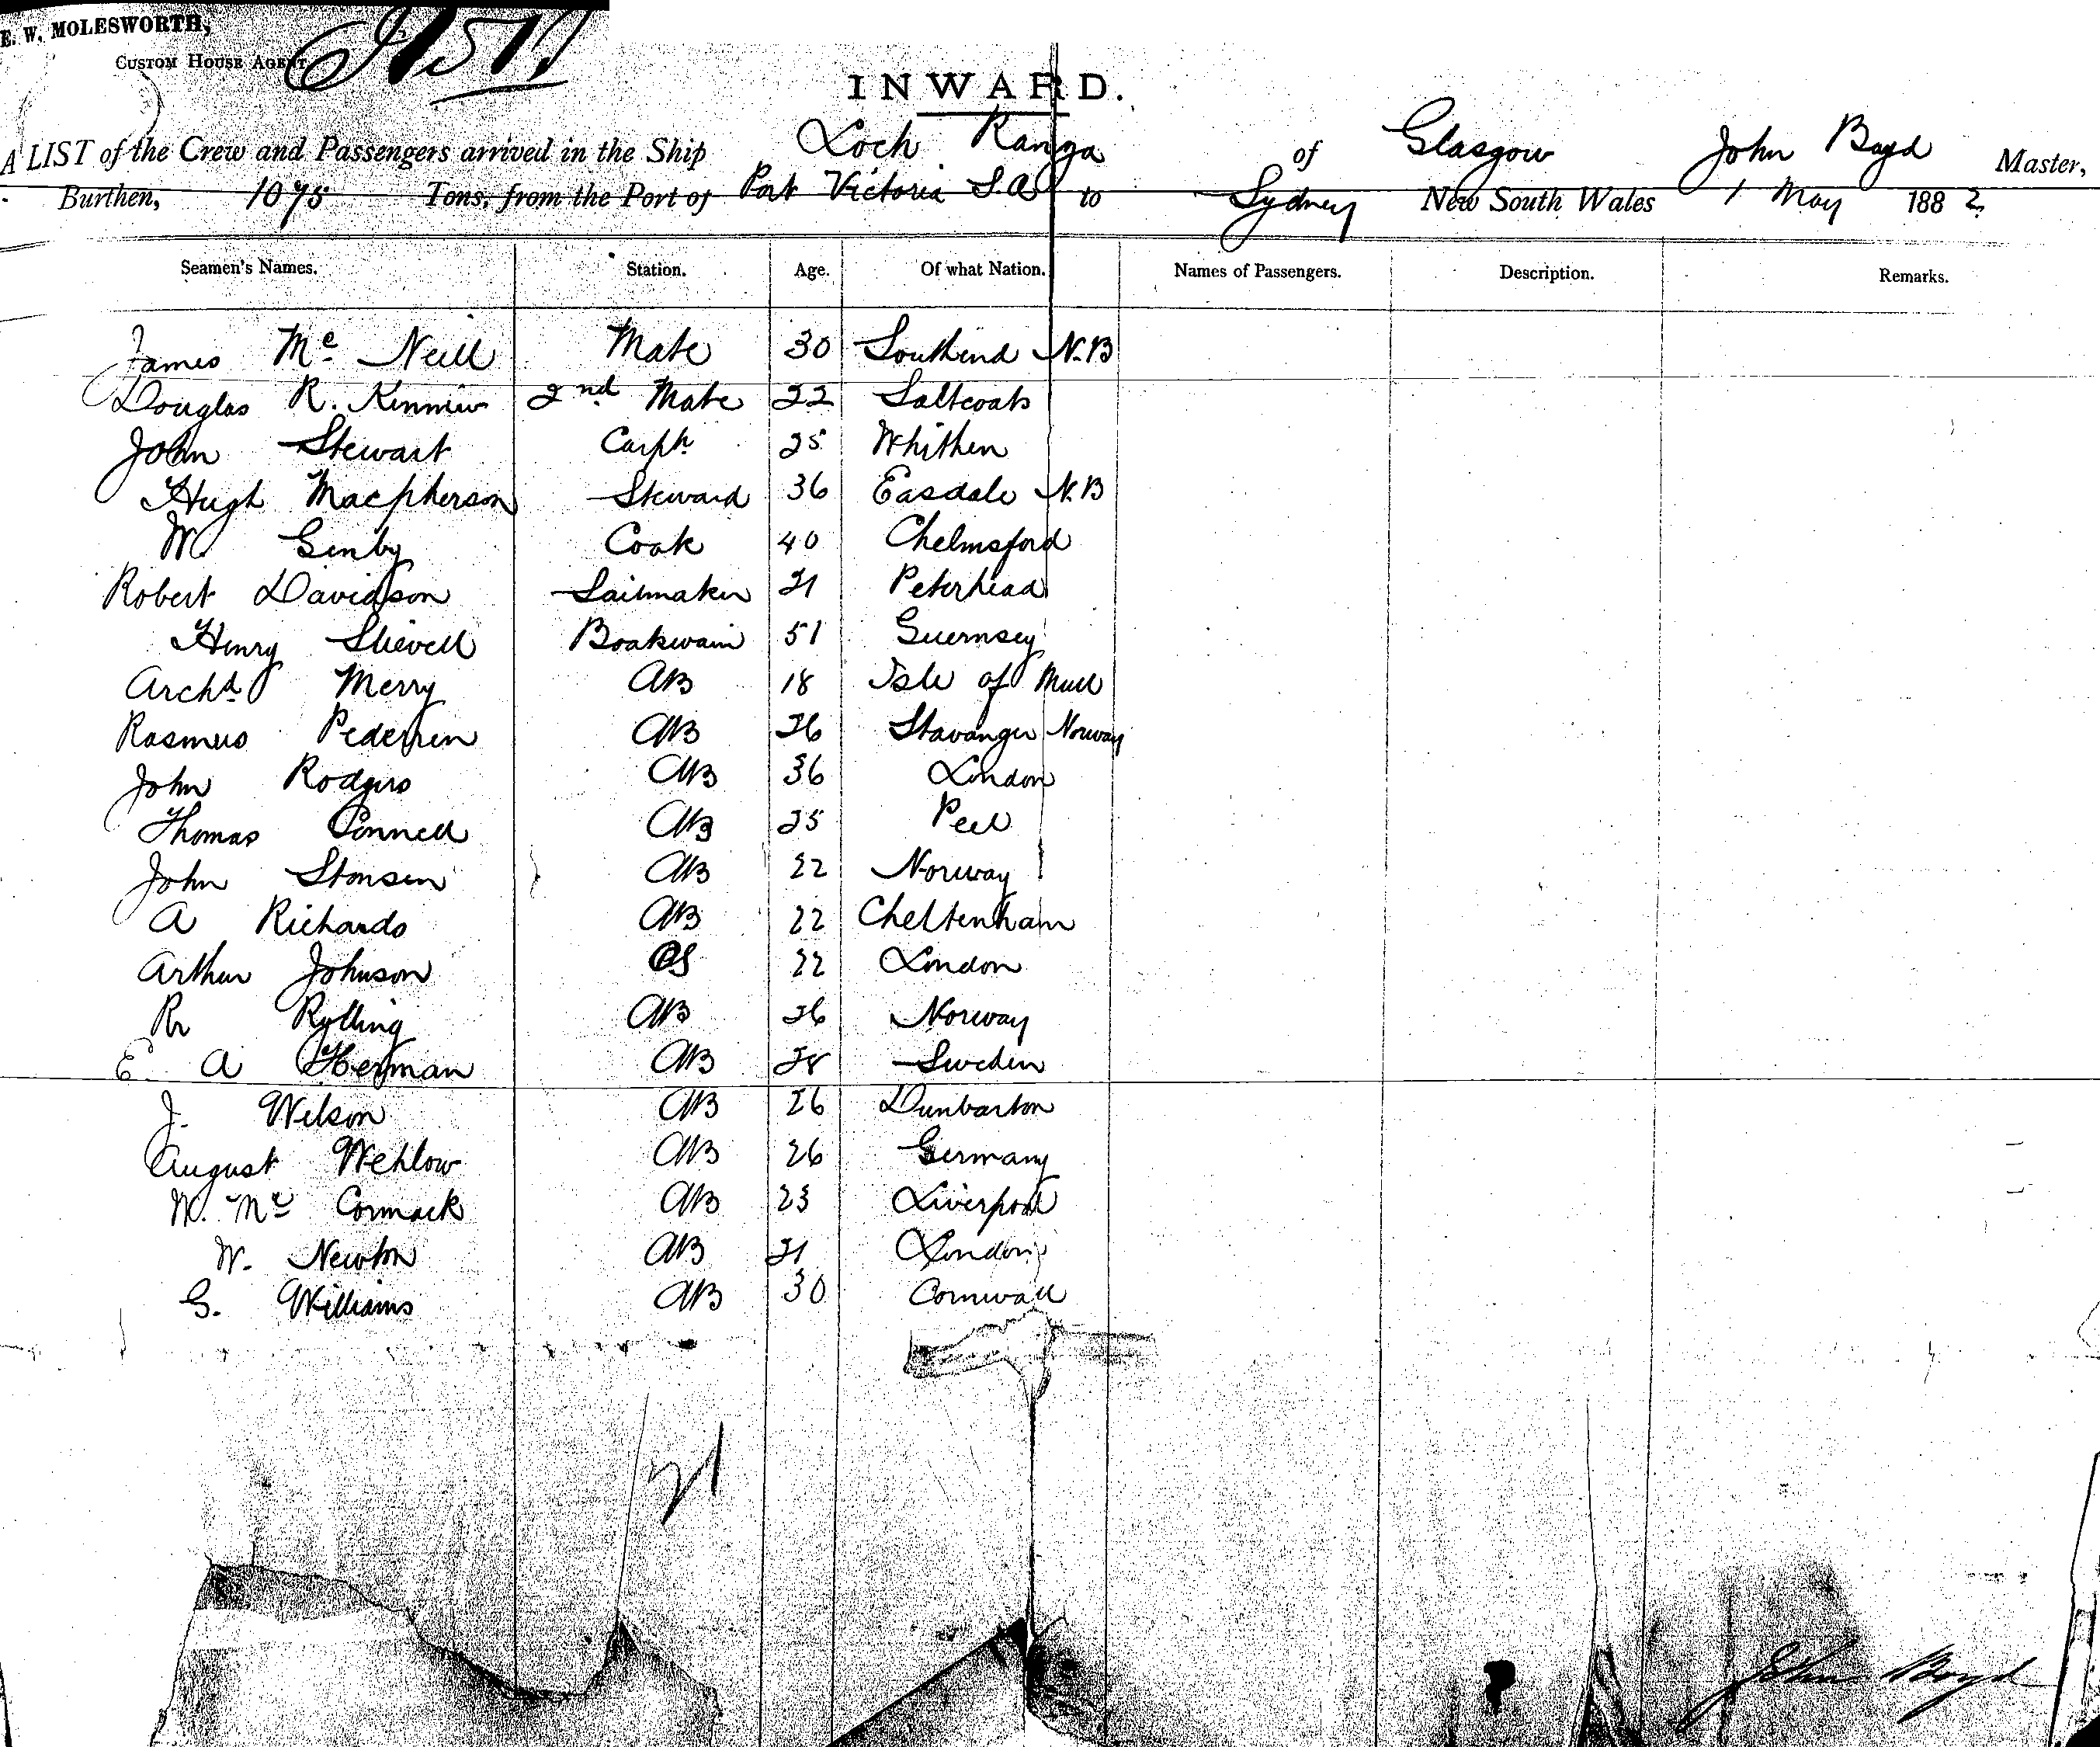 E. W. MOLESWORTH,
CUSTOM HOUSE AGENT
INWARD.
A LIST of the Crew and Passengers arrived in the Ship Loch Ranza of Glasgow John Boyd Master,
Burthen, 1075 Tons, from the Port of Port Victoria S.A to Sydney New South Wales 1 May 1882
Seamen's Names. Station. Age. Of what Nation. Names of Passengers. Description. Remarks.
James Mc Neill Mate 30 Southend N.B
Douglas R. 2nd Mate 22 Saltcoats
John Stewart Carpr 25 Whithen
Hugh Macpherson Steward 36 Easdale N.B
W Cook 40 Chelmsford
Robert Davidson Sailmaker 21 Peterhead
Henry Boatswain 51 Guernsey
Archd Merry AB 18 Isle of Mull
Rasmus Pedersen AB 26 Stavanger Norway
John Rodgers AB 36 London
Thomas Connell AB 25 Peel
John AB 22 Norway
A Richards AB 22 Cheltenham
Arthur Johnson OS 22 London
Rylling AB 26 Norway
E A Herman AB 28 Sweden
J. Wilson AB 26 Dunbarton
August Wehlow AB 26 Germany
W. Mc Cormack AB 23 Liverpool
W. Newton AB 21 London
G. Williams AB 30 Cornwall
21
John Boyd